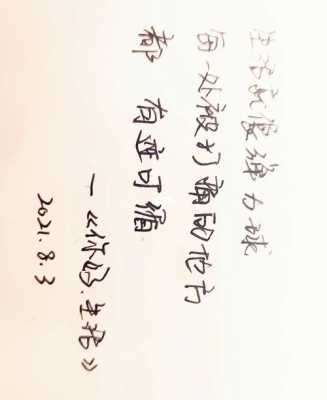 生活就像弹力球
每一处被打痛的地方
都 有迹可循
—《你好.生活》
2021.8.3